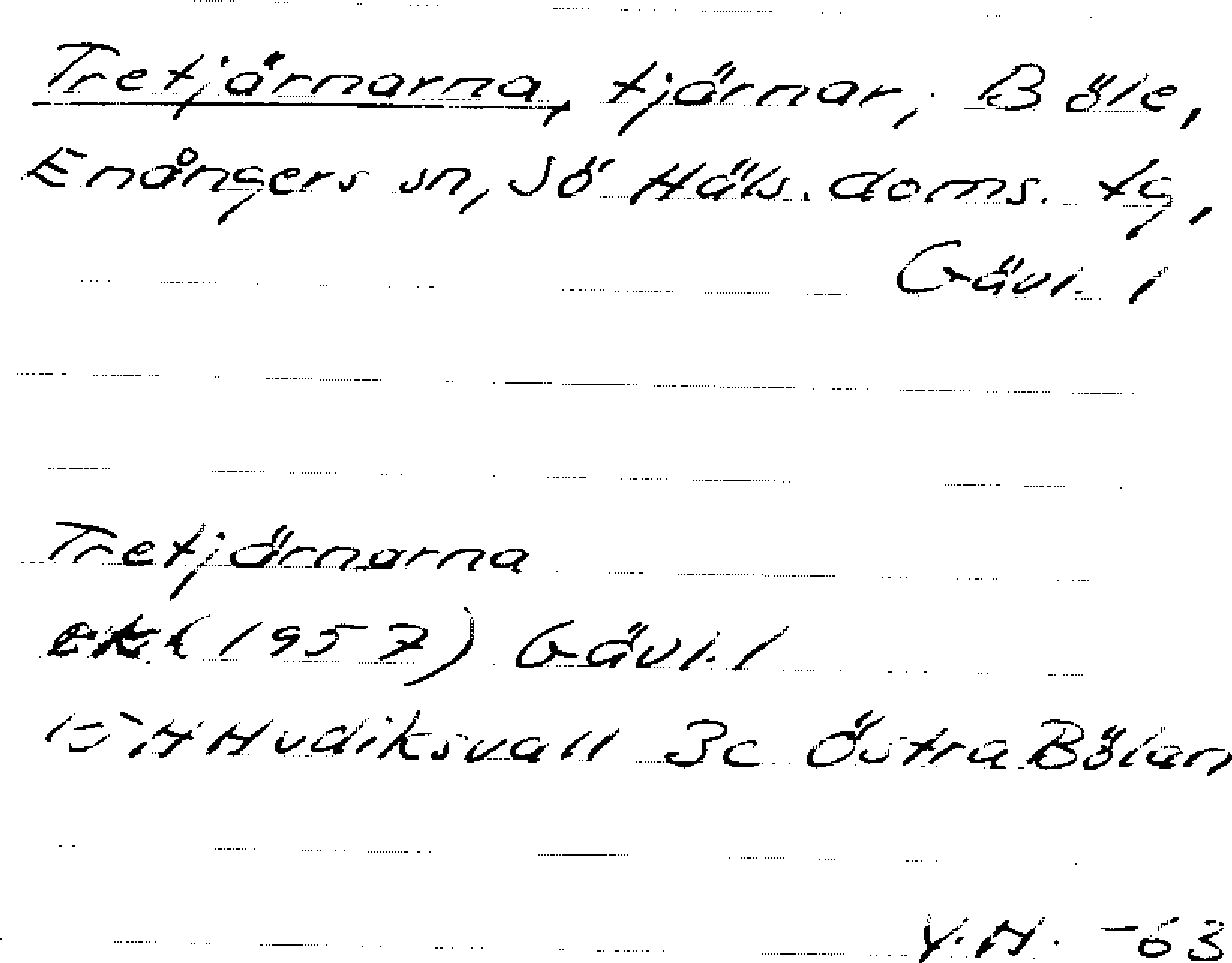 Tretjärnarna, tjärnar, Böle,
Enångers sn, Sö Häls. doms. tg,
Gävl. l
Tretjärnarna
ek (1957) Gävl. l
15 H Hudiksvall 3c Östra Bölan
Y.H. -63